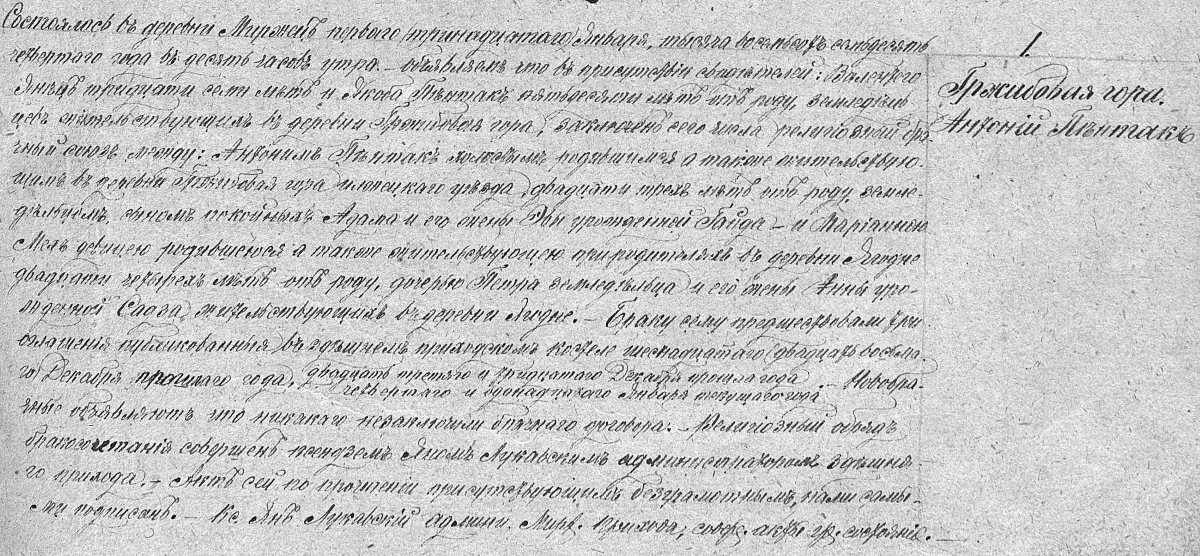 Состоялось въ деревни Миржецъ первого (тринадцатого) Января, тысяча восемьсотъ семьдесятъ
четвертого года въ десять часовъ утра. — Объявляемъ что въ присутствіи свидѣтелей: Валентего
тридцати семи лѣтъ и Якова Пѣнтакъ пятьдесяти лѣтъ отъ роду, земледѣль
цевъ жительствующихъ въ деревни Гржибовая гора, заключенъ сего числа религіозный бра
чный союзъ между: Антонимъ Пѣнтакъ холостымъ родившимся а также жительствую
щимъ въ деревни Гржибовая гора илжецкаго уѣзда, двадцати трехъ лѣтъ отъ роду, земле
дѣльцемъ, сыномъ покойныхъ Адама и его жены Эвы урожденной Гайда — и Маріанною
Мель девицею родившеюся а также жительствующею при родителяхъ въ деревни Ягодне
двадцати четырехъ лѣтъ отъ роду, дочерью Петра земледѣльца и его жены Анны уро
жденной жительствующихъ въ деревни Ягодне. — Браку сему предшествовали три
оглашенія публикованныя въ здѣшнемъ приходскомъ костеле шеснадцатаго (двадцать восьма
го) Декабря прошлаго года, двадцать третяго и тридцатого Декабря прошла года
четвертаго и одонадцатаго Января текущаго года. — Новобра
чные объявляютъ что никакаго незаключили брачнаго договора. — Религіозный обрядъ
бракосочетанія совершенъ ксендземъ Яномъ Лукавскимъ администраторомъ здѣшня
го прихода. — Актъ сей по прочтеніи присутствующимъ безграмотнымъ, нами самы
ми подписанъ. — Кс. Янъ Лукавскій админи. Мирж. прихода, содер. акты гр. состоянія. —
1.
Гржибовая гора.
Антоній Пѣнтакъ